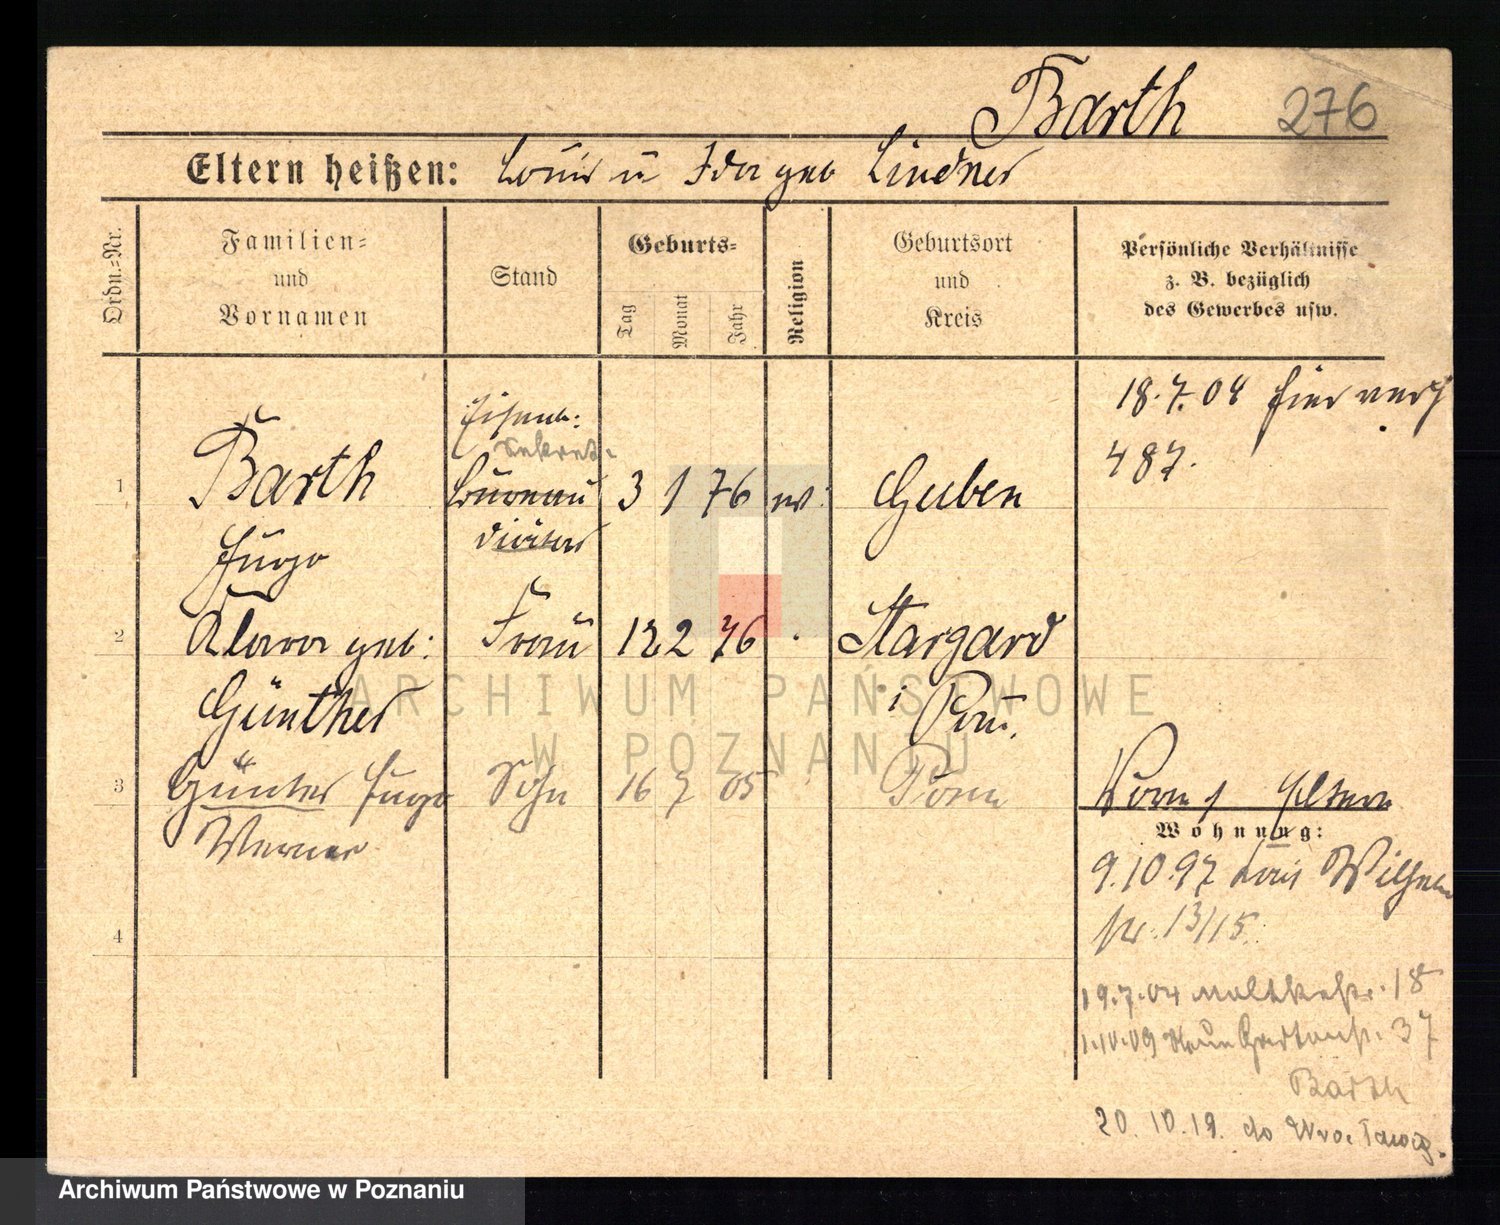 Barth
276
Eltern heißen: Louis u Ida geb Lindner
Ordn.-Nr.
Familien-
und
Vornamen
Stand
Geburts-
Tag
Monat
Jahr
Religion
Geburtsort
und
Kreis
Persönliche Verhältnisse
z. B. bezüglich
des Gewerbes usw.
18.7.04 hier
487.
Eisenb:
Sekret.
1 Barth Bureau 3 1 76 ev: Guben
Hugo diätar
2 Klara geb: Frau 12 2 76 Stargard
Günther i Pom.
3 Günter Hugo Sohn 16 7 05 Posen
Werner
Eltern
Wohnung:
9.10.97 Wilhelm
str. 13/15.
4
19.7.04 Moltkestr. 18
1.10.09 Neue Gartenstr. 37
Barth
20.10.19. do Wrocławia.
ARCHIWUM PAŃSTWOWE
W POZNANIU
Archiwum Państwowe w Poznaniu